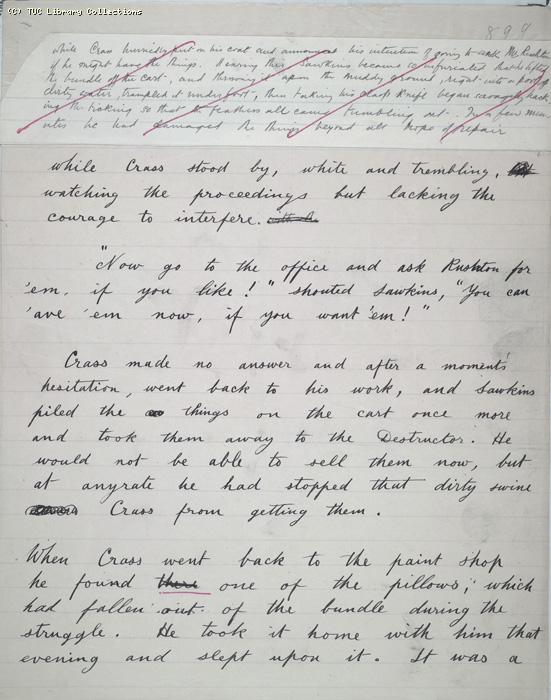 (C) TUC Library Collections
899
while Crass hurriedly put on his coat and announced his intention of going to ask Mr Rushton
if he might have the things. Hearing this Sawkins became so infuriated that he lifted
the bundle off the cart, and throwing it upon the muddy ground, right into a pool of
dirty water, trampled it underfoot, then taking his clasp knife began savagely hack
ing the ticking so that the feathers all came tumbling out. In a few min
utes he had damaged the things beyond all hope of repair
while Crass stood by, white and trembling,
watching the proceedings but lacking the
courage to interfere.
"Now go to the office and ask Rushton for
'em, if you like!" shouted Sawkins, "You can
'ave 'em now, if you want 'em!"
Crass made no answer and after a moment's
hesitation, went back to his work, and Sawkins
piled the things on the cart once more
and took them away to the Destructor. He
would not be able to sell them now, but
at anyrate he had stopped that dirty swine
Crass from getting them.
When Crass went back to the paint shop
he found there one of the pillows, which
had fallen out of the bundle during the
struggle. He took it home with him that
evening and slept upon it. It was a